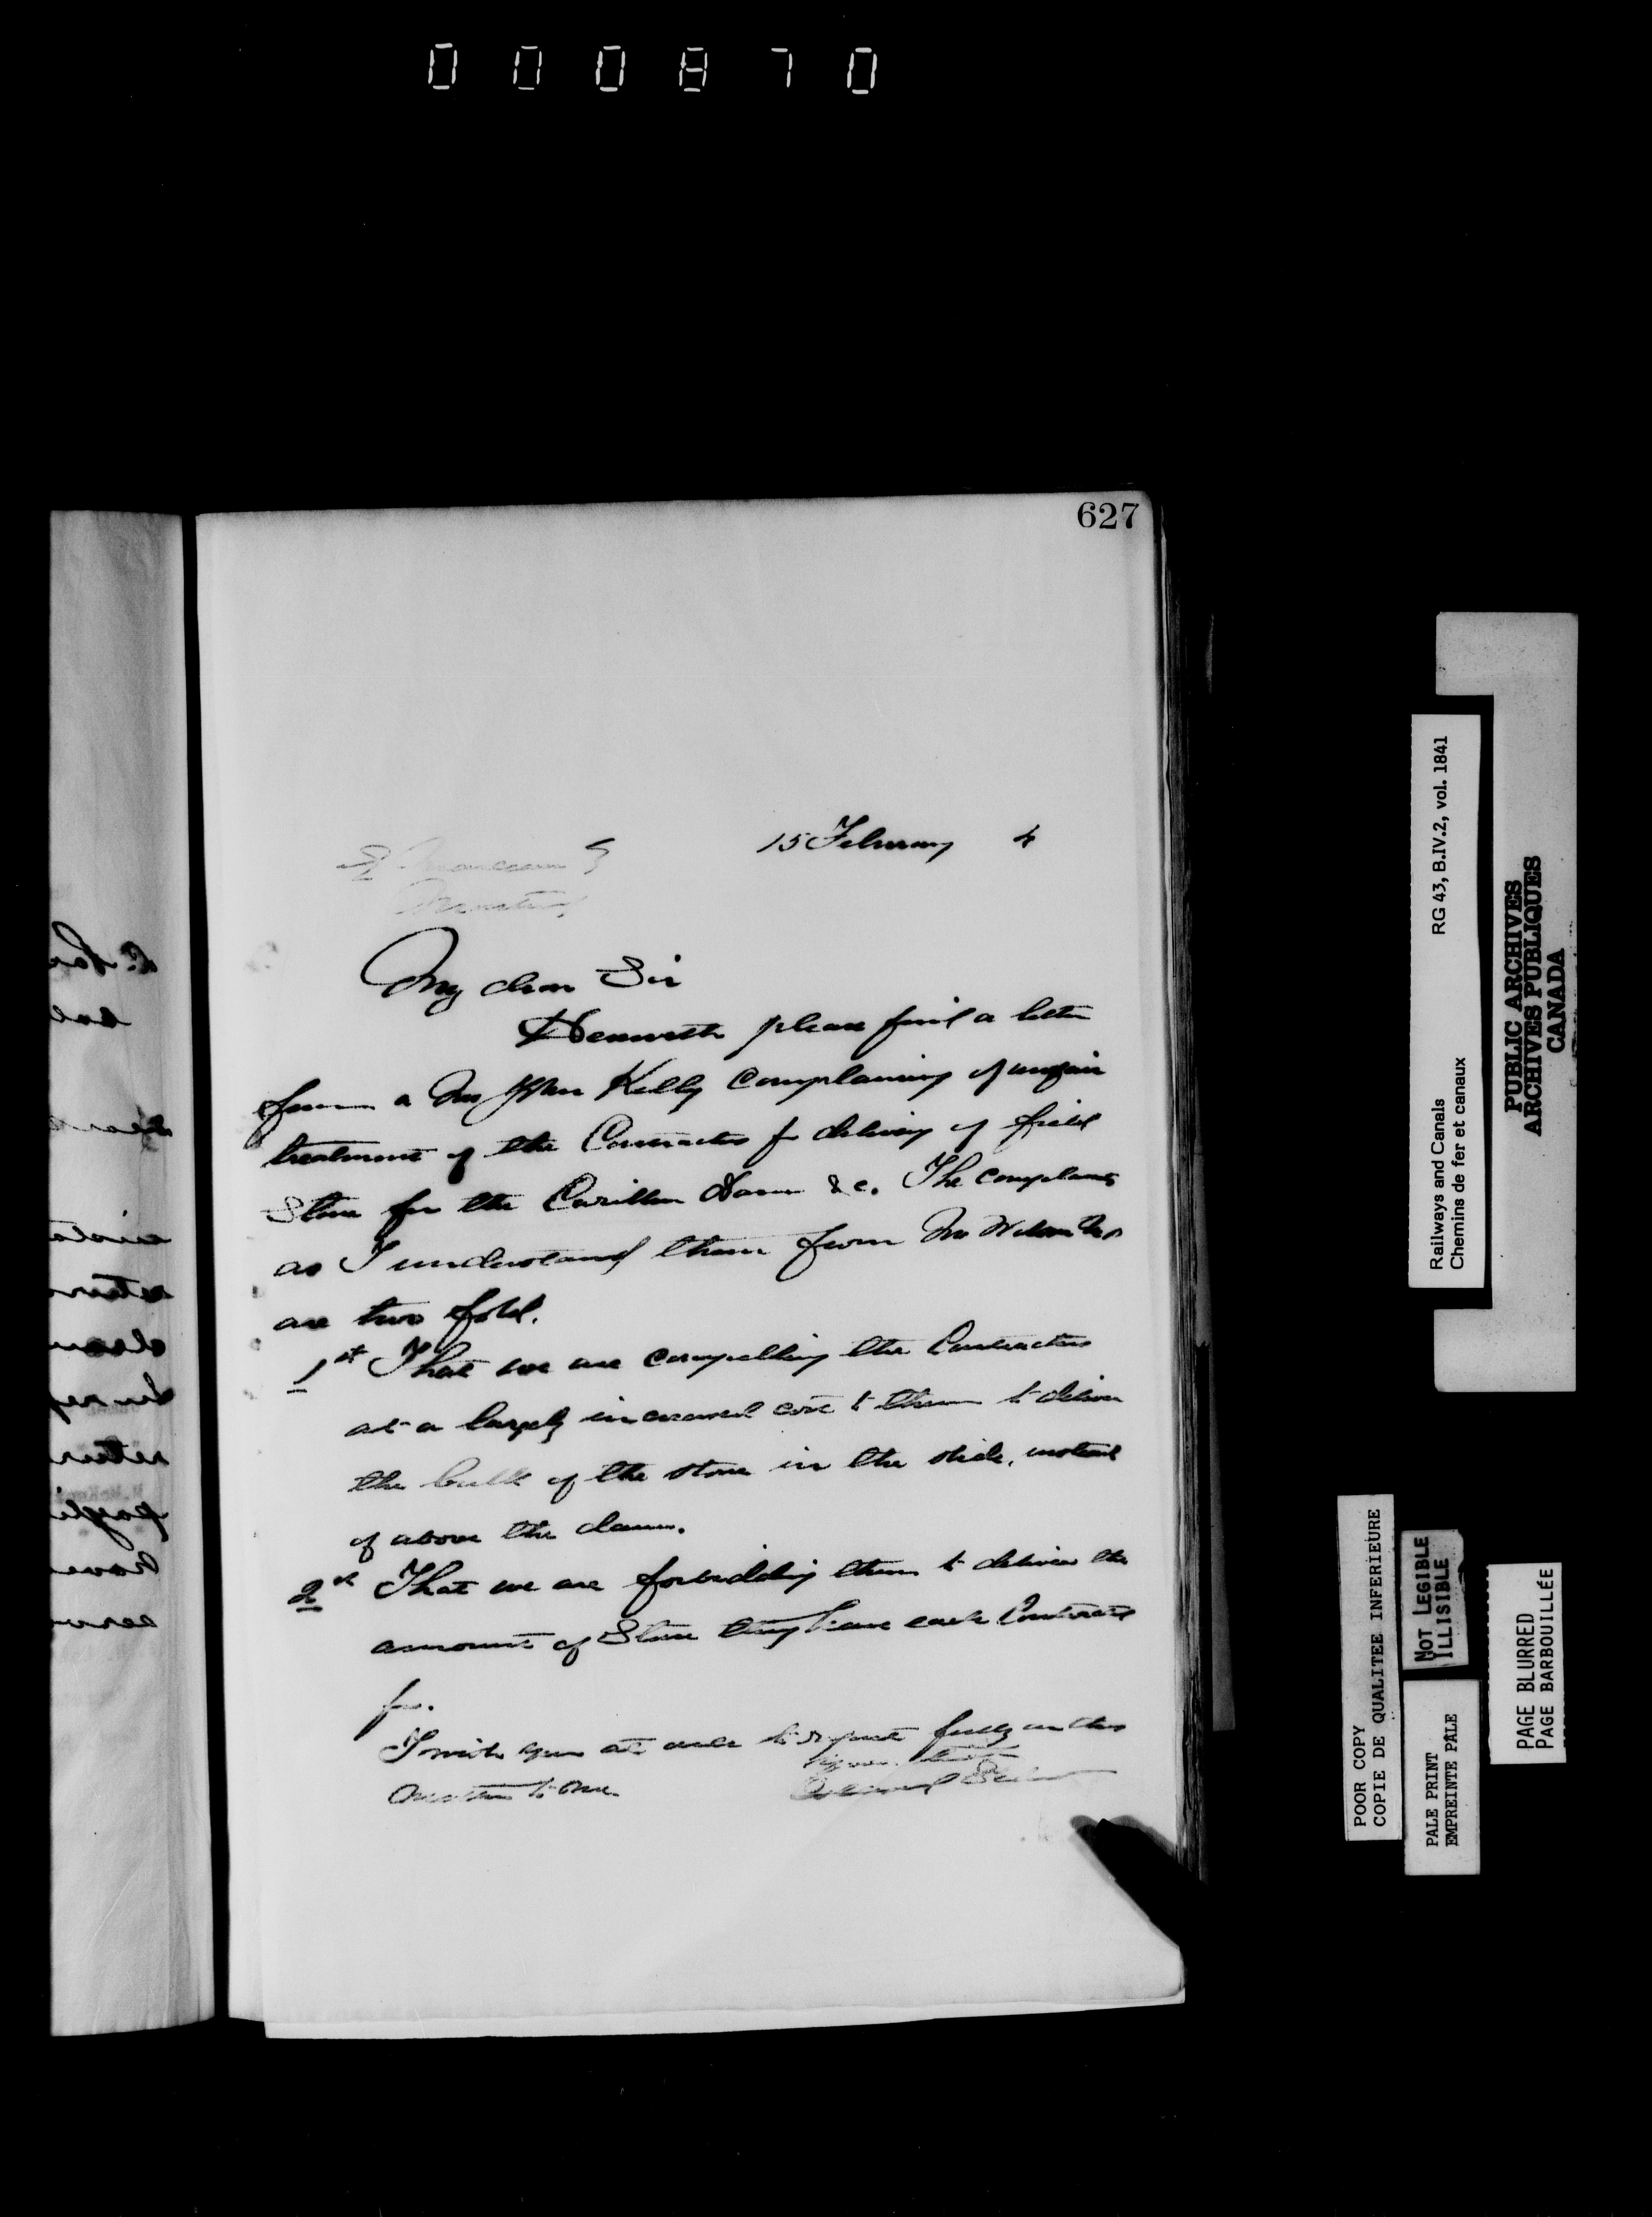 000870
627
15 February 4
My dear Sir
Herewith please find a letter
from a Mr Kelly Complaining of unfair
treatment of the Contractors for delivery of field
Stone for the Carillon Dam &c. The complaints
as I understand them from Mr Wilson
are two fold.
1st That we are compelling the Contractors
at a largely increased cost to them to deliver
the bulk of the stone in the slide, instead
of above the dam.
2nd That we are forbidding them to deliver the
amount of Stone they have each Contracted
for.
I wish you at once to report fully on this
matter to me
Railways and Canals RG 43, B.IV.2, vol. 1841
Chemins de fer et canaux
PUBLIC ARCHIVES
ARCHIVES PUBLIQUES
CANADA
POOR COPY
COPIE DE QUALITEE INFERIEURE
NOT LEGIBLE
ILLISIBLE
PALE PRINT
EMPREINTE PALE
PAGE BLURRED
PAGE BARBOUILLÉE